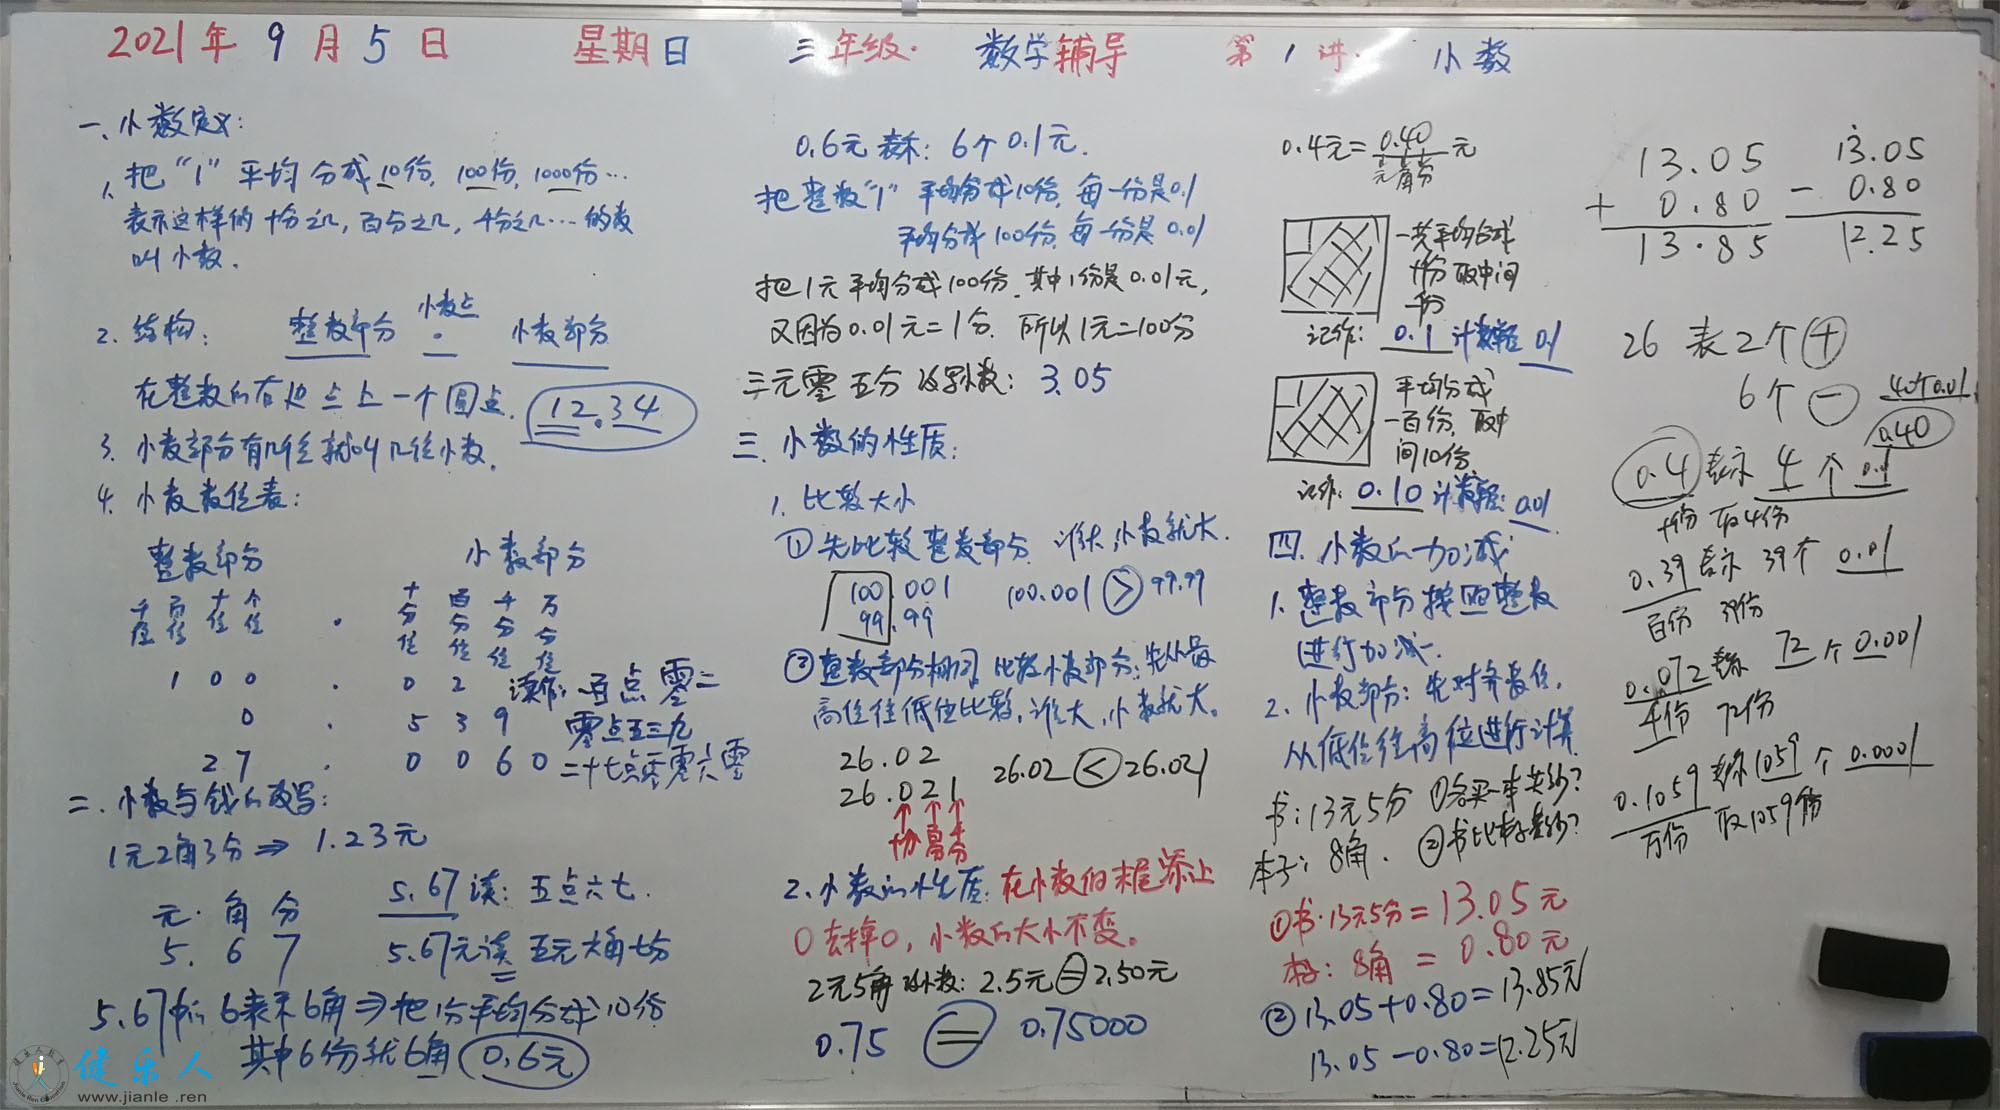 2021年9月5日 星期日 三年级·数学辅导 第1讲· 小数
一、小数定义:
1. 把"1"平均分成10份, 100份, 1000份…
表示这样的十分之几, 百分之几, 千分之几…的数
叫小数.
2. 结构: 整数部分 小数点 · 小数部分
在整数的右边点上一个圆点. 12.34
3. 小数部分有几位就叫几位小数.
4. 小数数位表:
整数部分 小数部分
千位 百位 十位 个位 . 十分位 百分位 千分位 万分位
100 . 02 读作: 一百点零二
0 . 539 零点五三九
27 . 0060 二十七点零零六零
二、小数与钱的改写:
1元2角3分⇒1.23元
元·角 分
5. 6 7
5.67读: 五点六七.
5.67元读 五元六角七分
5.67中的6表示6角⇒把1分平均分成10份
其中6份就6角 0.6元
健乐人
www.jianle.ren
0.6元表示: 6个0.1元.
把整数"1"平均分成10份, 每一份是0.1
平均分成100份, 每一份是0.01
把1元平均分成100份, 其中1份是0.01元,
又因为0.01元=1分. 所以1元=100分
三元零五分 改写小数: 3.05
三、小数的性质:
1. 比较大小
①先比较整数部分. 谁大,小数就大.
100.001
99.99
100.001 > 99.99
②整数部分相同, 比较小数部分: 先从最
高位往低位比较, 谁大, 小数就大.
26.02
26.021
26.02 < 26.021
十分 百分 千分
2. 小数的性质: 在小数的末尾添上
0去掉0, 小数的大小不变。
2元5角 改小数: 2.5元=2.50元
0.75 = 0.75000
0.4元=0.40元
元角分
一共平均分成
十份 取中间
一份
记作: 0.1 计数单位 0.1
平均分成
一百份, 取中
间10份
记作: 0.10 计数单位: 0.01
四、小数的加减
1. 整数部分按照整数
进行加减.
2. 小数部分: 先对齐数位,
从低位往高位进行计算.
书: 13元5分 ①各买一本共多少?
本子: 8角. ②书比本子贵多少?
①书·13元5分=13.05元
本子: 8角 = 0.80元
②13.05+0.80=13.85元
13.05-0.80=12.25元
13.05
+ 0.80
13.85
13.05
- 0.80
12.25
26 表2个十
6个一
40个0.01
0.40
0.4表示 4个0.1
十份 取4份
0.39表示 39个 0.01
百份 39份
0.072表示 72个0.001
千份 72份
0.1059表示1059个0.0001
万份 取1059份